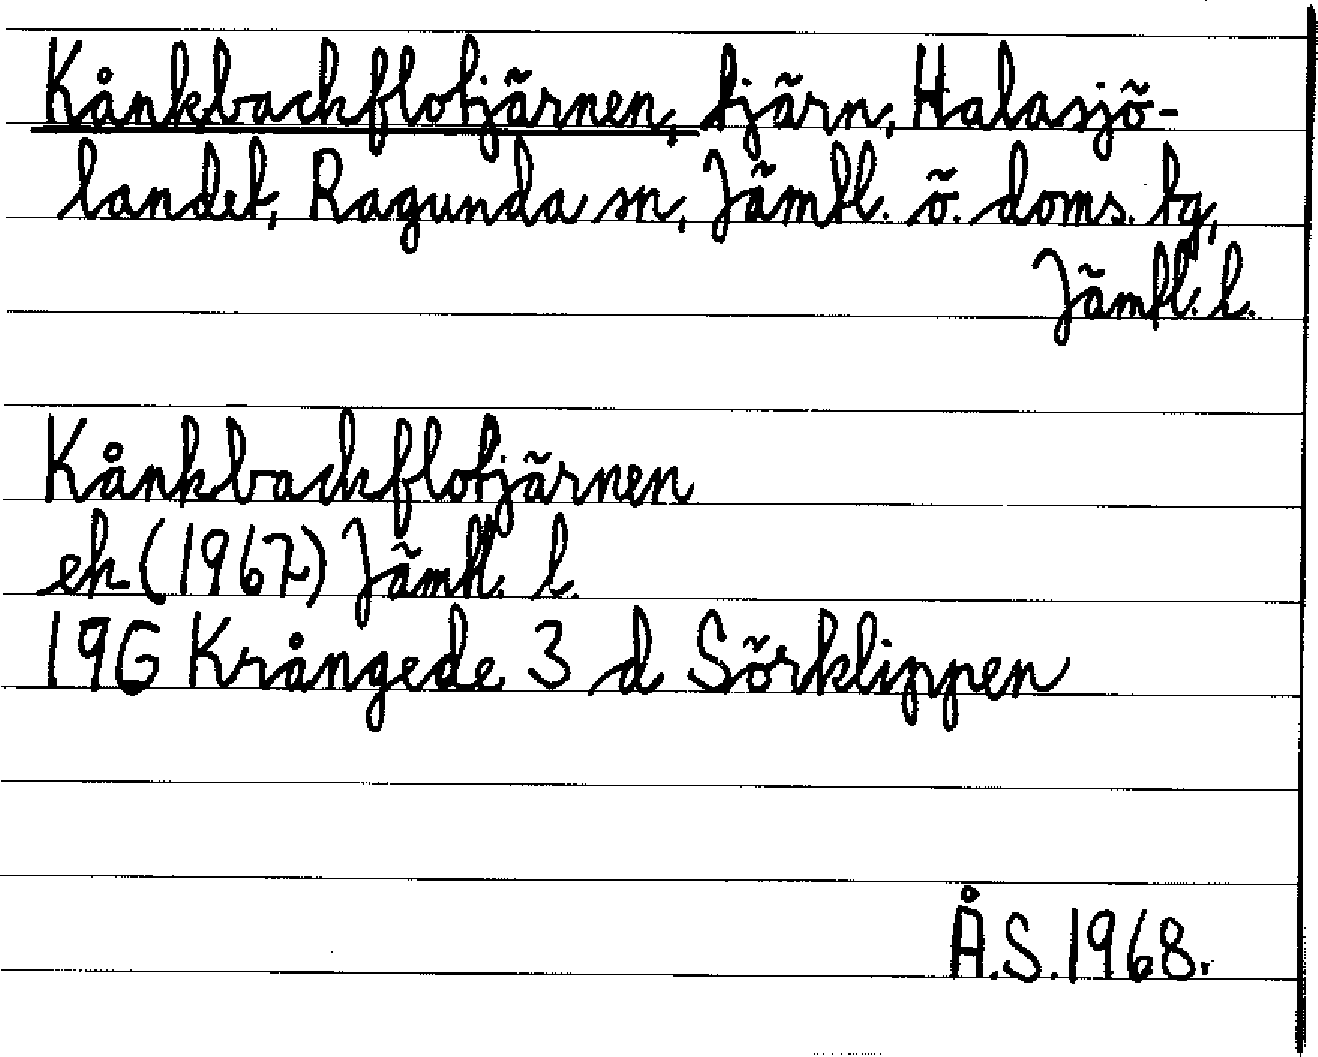 Kånkbackflotjärnen, tjärn, Halasjö-
landet, Ragunda sn, Jämtl. ö. doms. tg,
Jämtl. l.
Kånkbackflotjärnen
ek (1967) Jämtl. l.
19G Krångede 3 d Sörklippen
Å.S. 1968.